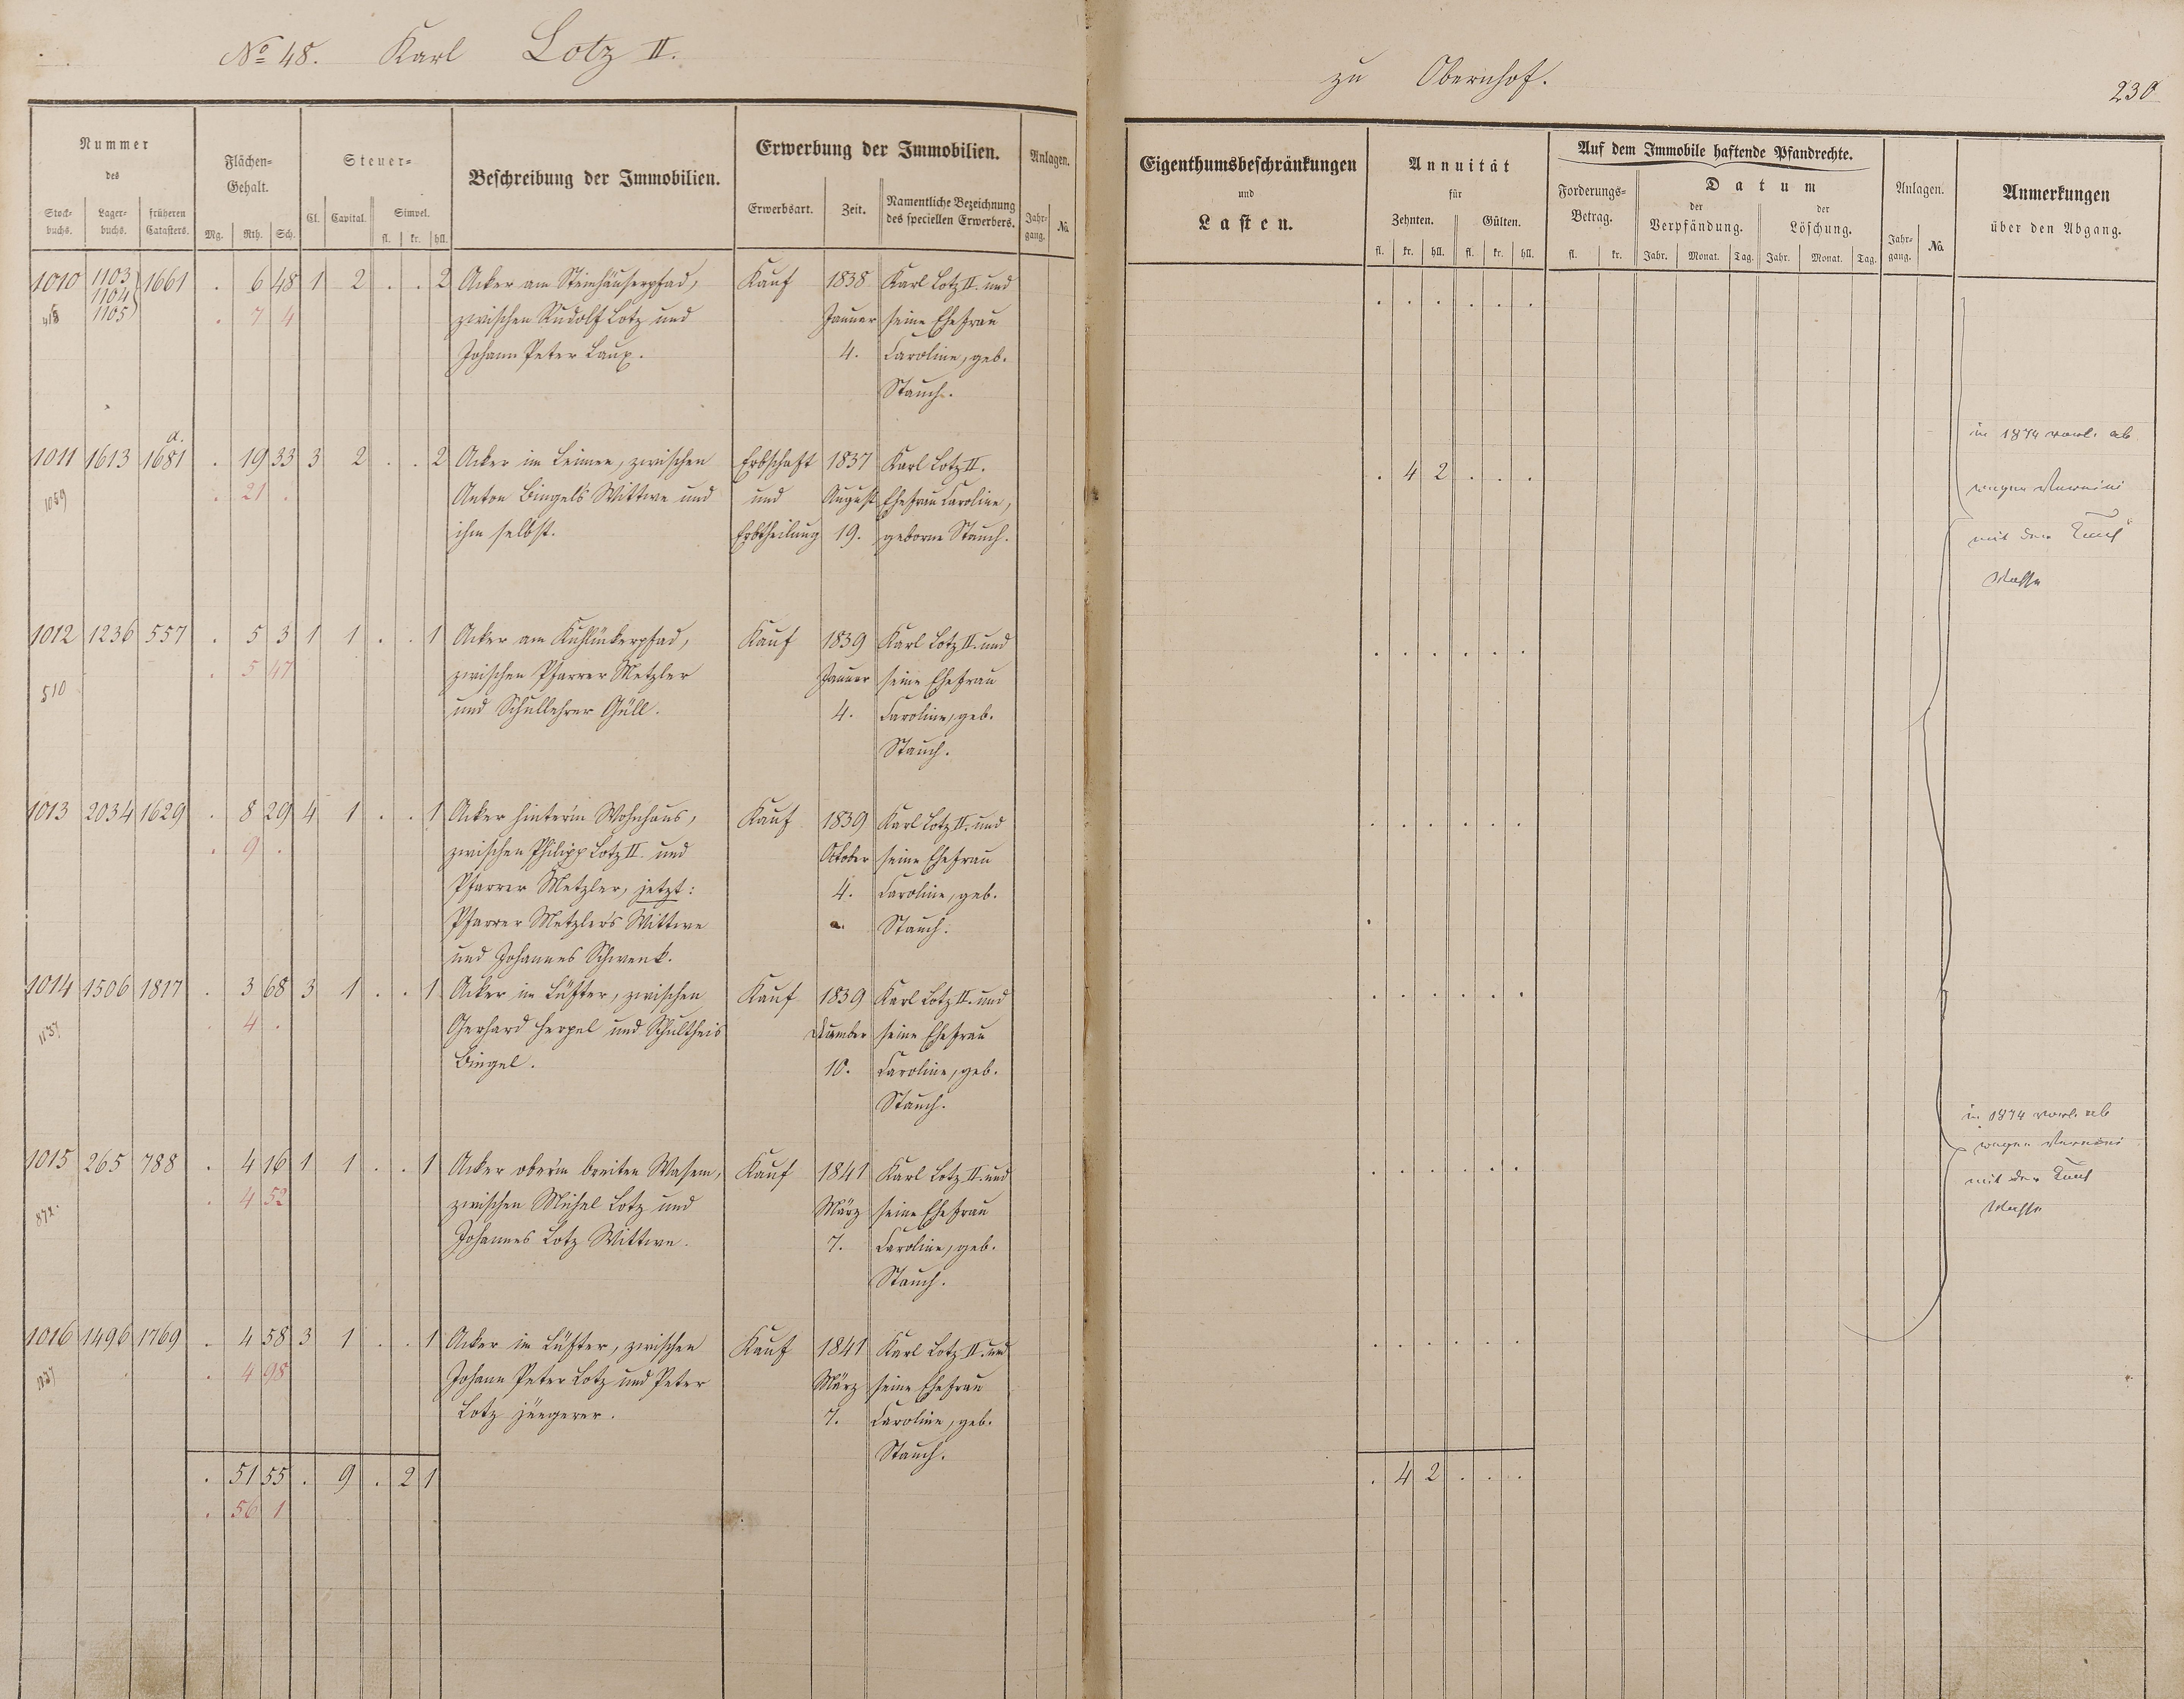 No 48. Karl Lotz II.
zu Obernhof.
230
Nummer
des
Stock-
buchs.
Lager-
buchs.
früheren
Catasters.
Flächen-
Gehalt.
Mg. Rth. Sch.
Steuer-
Cl. Capital. Simpel.
fl. kr. hll.
Beschreibung der Immobilien.
Erwerbung der Immobilien.
Erwerbsart. Zeit. Namentliche Bezeichnung
des speciellen Erwerbers.
Anlagen.
Jahr-
gang. No.
Eigenthumsbeschränkungen
und
Lasten.
Annuität
für
Zehnten. Gülten.
fl. kr. hll. fl. kr. hll.
Auf dem Immobile haftende Pfandrechte.
Forderungs-
Betrag.
fl. kr.
Datum
der
Verpfändung.
der
Löschung.
Jahr. Monat. Tag. Jahr. Monat. Tag.
Anlagen.
Jahr-
gang. No.
Anmerkungen
über den Abgang.
1010 1103 1661 . 6 48 1 2 . . 2 Acker am Steinhäuserpfad, Kauf 1838 Karl Lotz II. und
1104
1105 . 7 4 zwischen Rudolf Lotz und Januar seine Ehefrau
Johann Peter Laux. 4. Caroline, geb.
Stauch.
a.
1011 1613 1681 . 19 33 3 2 . . 2 Acker im Leimen, zwischen Erbschaft 1837 Karl Lotz II. . 4 2 . . .
1059 . 21 . Anton Bingel's Wittwe und und August Ehefrau Caroline,
ihm selbst. Erbtheilung 19. geborne Stauch.
in 1874 ab
wegen
mit der
Masse
1012 1236 557 . 5 3 1 1 . . 1 Acker am Kuhlückerpfad, Kauf 1839 Karl Lotz II. und
510 . 5 47 zwischen Pfarrer Metzler Januar seine Ehefrau
und Schullehrer Güll. 4. Caroline, geb.
Stauch.
1013 2034 1629 . 8 29 4 1 . . 1 Acker hinterm Wohnhaus, Kauf 1839 Karl Lotz II. und
. 9 . zwischen Philipp Lotz II. und Oktober seine Ehefrau
Pfarrer Metzler, jetzt: 4. Caroline, geb.
Pfarrer Metzler's Wittwe Stauch.
und Johannes Schwenk.
1014 1506 1817 . 3 68 3 1 . . 1 Acker im Lüster, zwischen Kauf 1839 Karl Lotz II. und
1137 . 4 . Gerhard Herpel und Schultheis Dezember seine Ehefrau
Bingel. 10. Caroline, geb.
Stauch.
1015 265 788 . 4 16 1 1 . . 1 Acker oberm breiten Wasem, Kauf 1841 Karl Lotz II. und
872. . 4 52 zwischen Michel Lotz und März seine Ehefrau
Johannes Lotz Wittwe. 7. Caroline, geb.
Stauch.
in 1874 ab
wegen
mit der
Masse
1016 1496 1769 . 4 58 3 1 . . 1 Acker im Lüster, zwischen Kauf 1841 Karl Lotz II. und
. 4 98 Johann Peter Lotz und Peter März seine Ehefrau
Lotz jüngerer. 7. Caroline, geb.
Stauch.
. 51 55 . 9 . 2 1 . 4 2 . . .
. 56 1